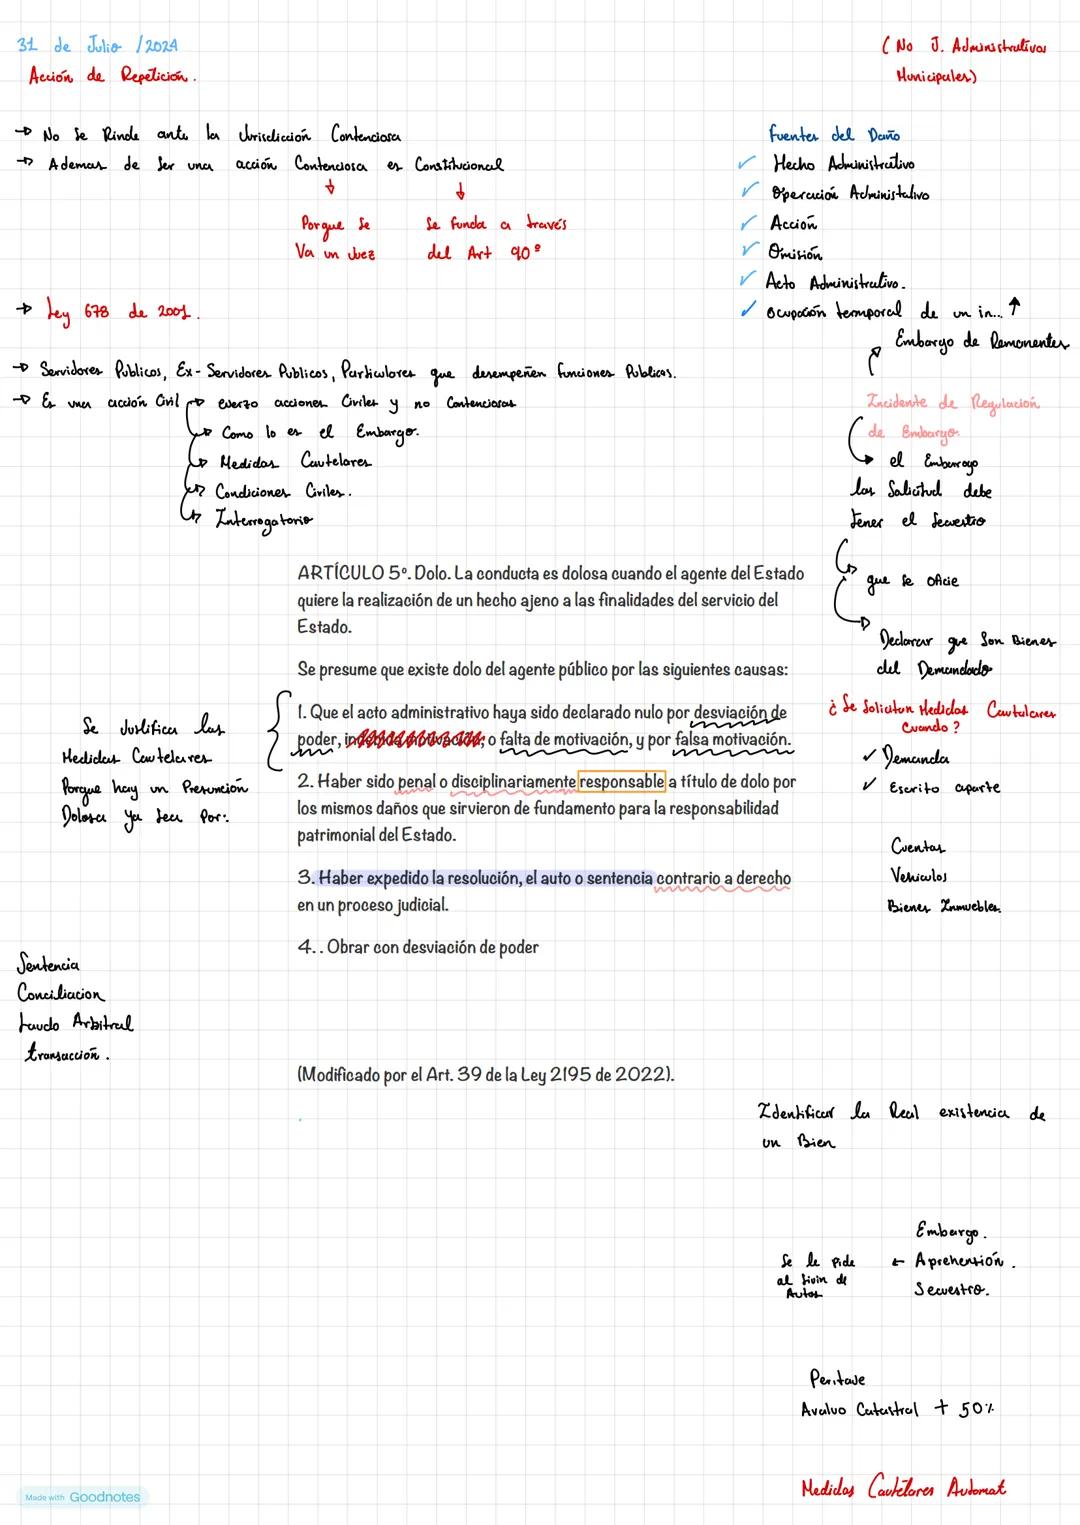 31 de Julio / 2024
Acción de Repetición.
( No J. Administrativos
Municipales)
→ No Se Rinde ante la Jurisdicción Contenciosa
→ Ademas de Ser una acción Contenciosa es Constitucional
Porque Se
Va un Juez
Se Funda a través
del Art 90°
→ Ley 678 de 2001.
→ Servidores Publicos, Ex-Servidores Publicos, Particulares que desempeñen funciones Publicas.
→ Es una acción Civil
→ ejerzo acciones Civiles y no Contenciosas
→ Como lo es el Embargo.
→ Medidas Cautelares
→ Condiciones Civiles.
→ Interrogatorio
Fuentes del Daño
✓ Hecho Administrativo
✓ Operación Administativo
✓ Acción
✓ Omisión
✓ Acto Administrativo.
✓ Ocupación termporal de un in... ↑
Embargo de Remanentes
Incidente de Regulación
de Embargo.
→ el Embargo
las Solicitud debe
tener el Secuestro
→ que se oficie
→ Declarar que Son Bienes
del Demandado
¿ Se Solicitan Medidas Cautelares
Cuando ?
✓ Demanda
✓ Escrito aparte
Cuentas
Vehiculos
Bienes Inmuebles.
ARTÍCULO 5º. Dolo. La conducta es dolosa cuando el agente del Estado
quiere la realización de un hecho ajeno a las finalidades del servicio del
Estado.
Se presume que existe dolo del agente público por las siguientes causas:
1. Que el acto administrativo haya sido declarado nulo por desviación de
poder, o falta de motivación, y por falsa motivación.
2. Haber sido penal o disciplinariamente responsable a título de dolo por
los mismos daños que sirvieron de fundamento para la responsabilidad
patrimonial del Estado.
3. Haber expedido la resolución, el auto o sentencia contrario a derecho
en un proceso judicial.
4. . Obrar con desviación de poder
(Modificado por el Art. 39 de la Ley 2195 de 2022).
Se Justifica las
Medidas Cautelares
Porque hay un Presunción
Dolosa ya sea Por:
Sentencia
Conciliacion
Laudo Arbitral
transacción.
Identificar la Real existencia de
un Bien
Embargo.
← Aprehensión.
Secuestro.
Se le Pide
al de
Autos
Peritaje
Avaluo Catastral + 50%
Medidas Cautelares Automat
Made with Goodnotes